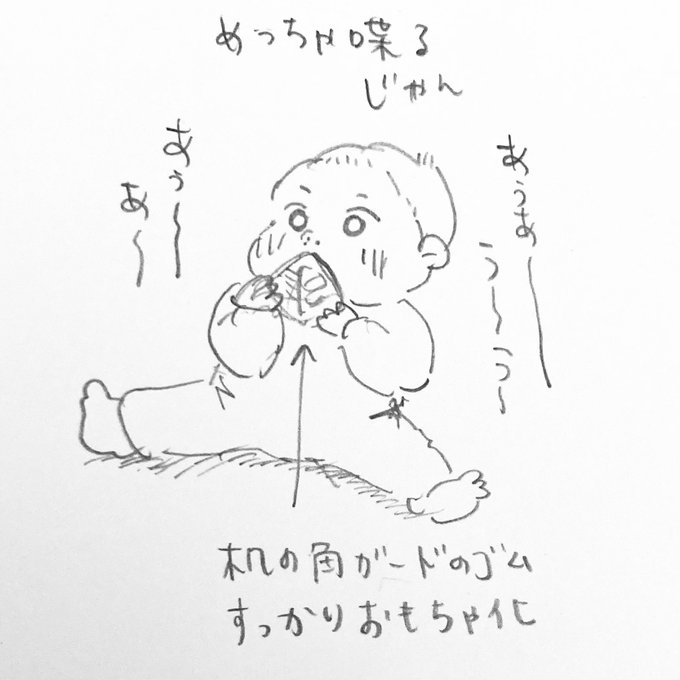 めっちゃ喋る
じゃん
あぅ〜
あ〜
あぅあー
う〜う〜
机の角ガードのゴム
すっかりおもちゃ化